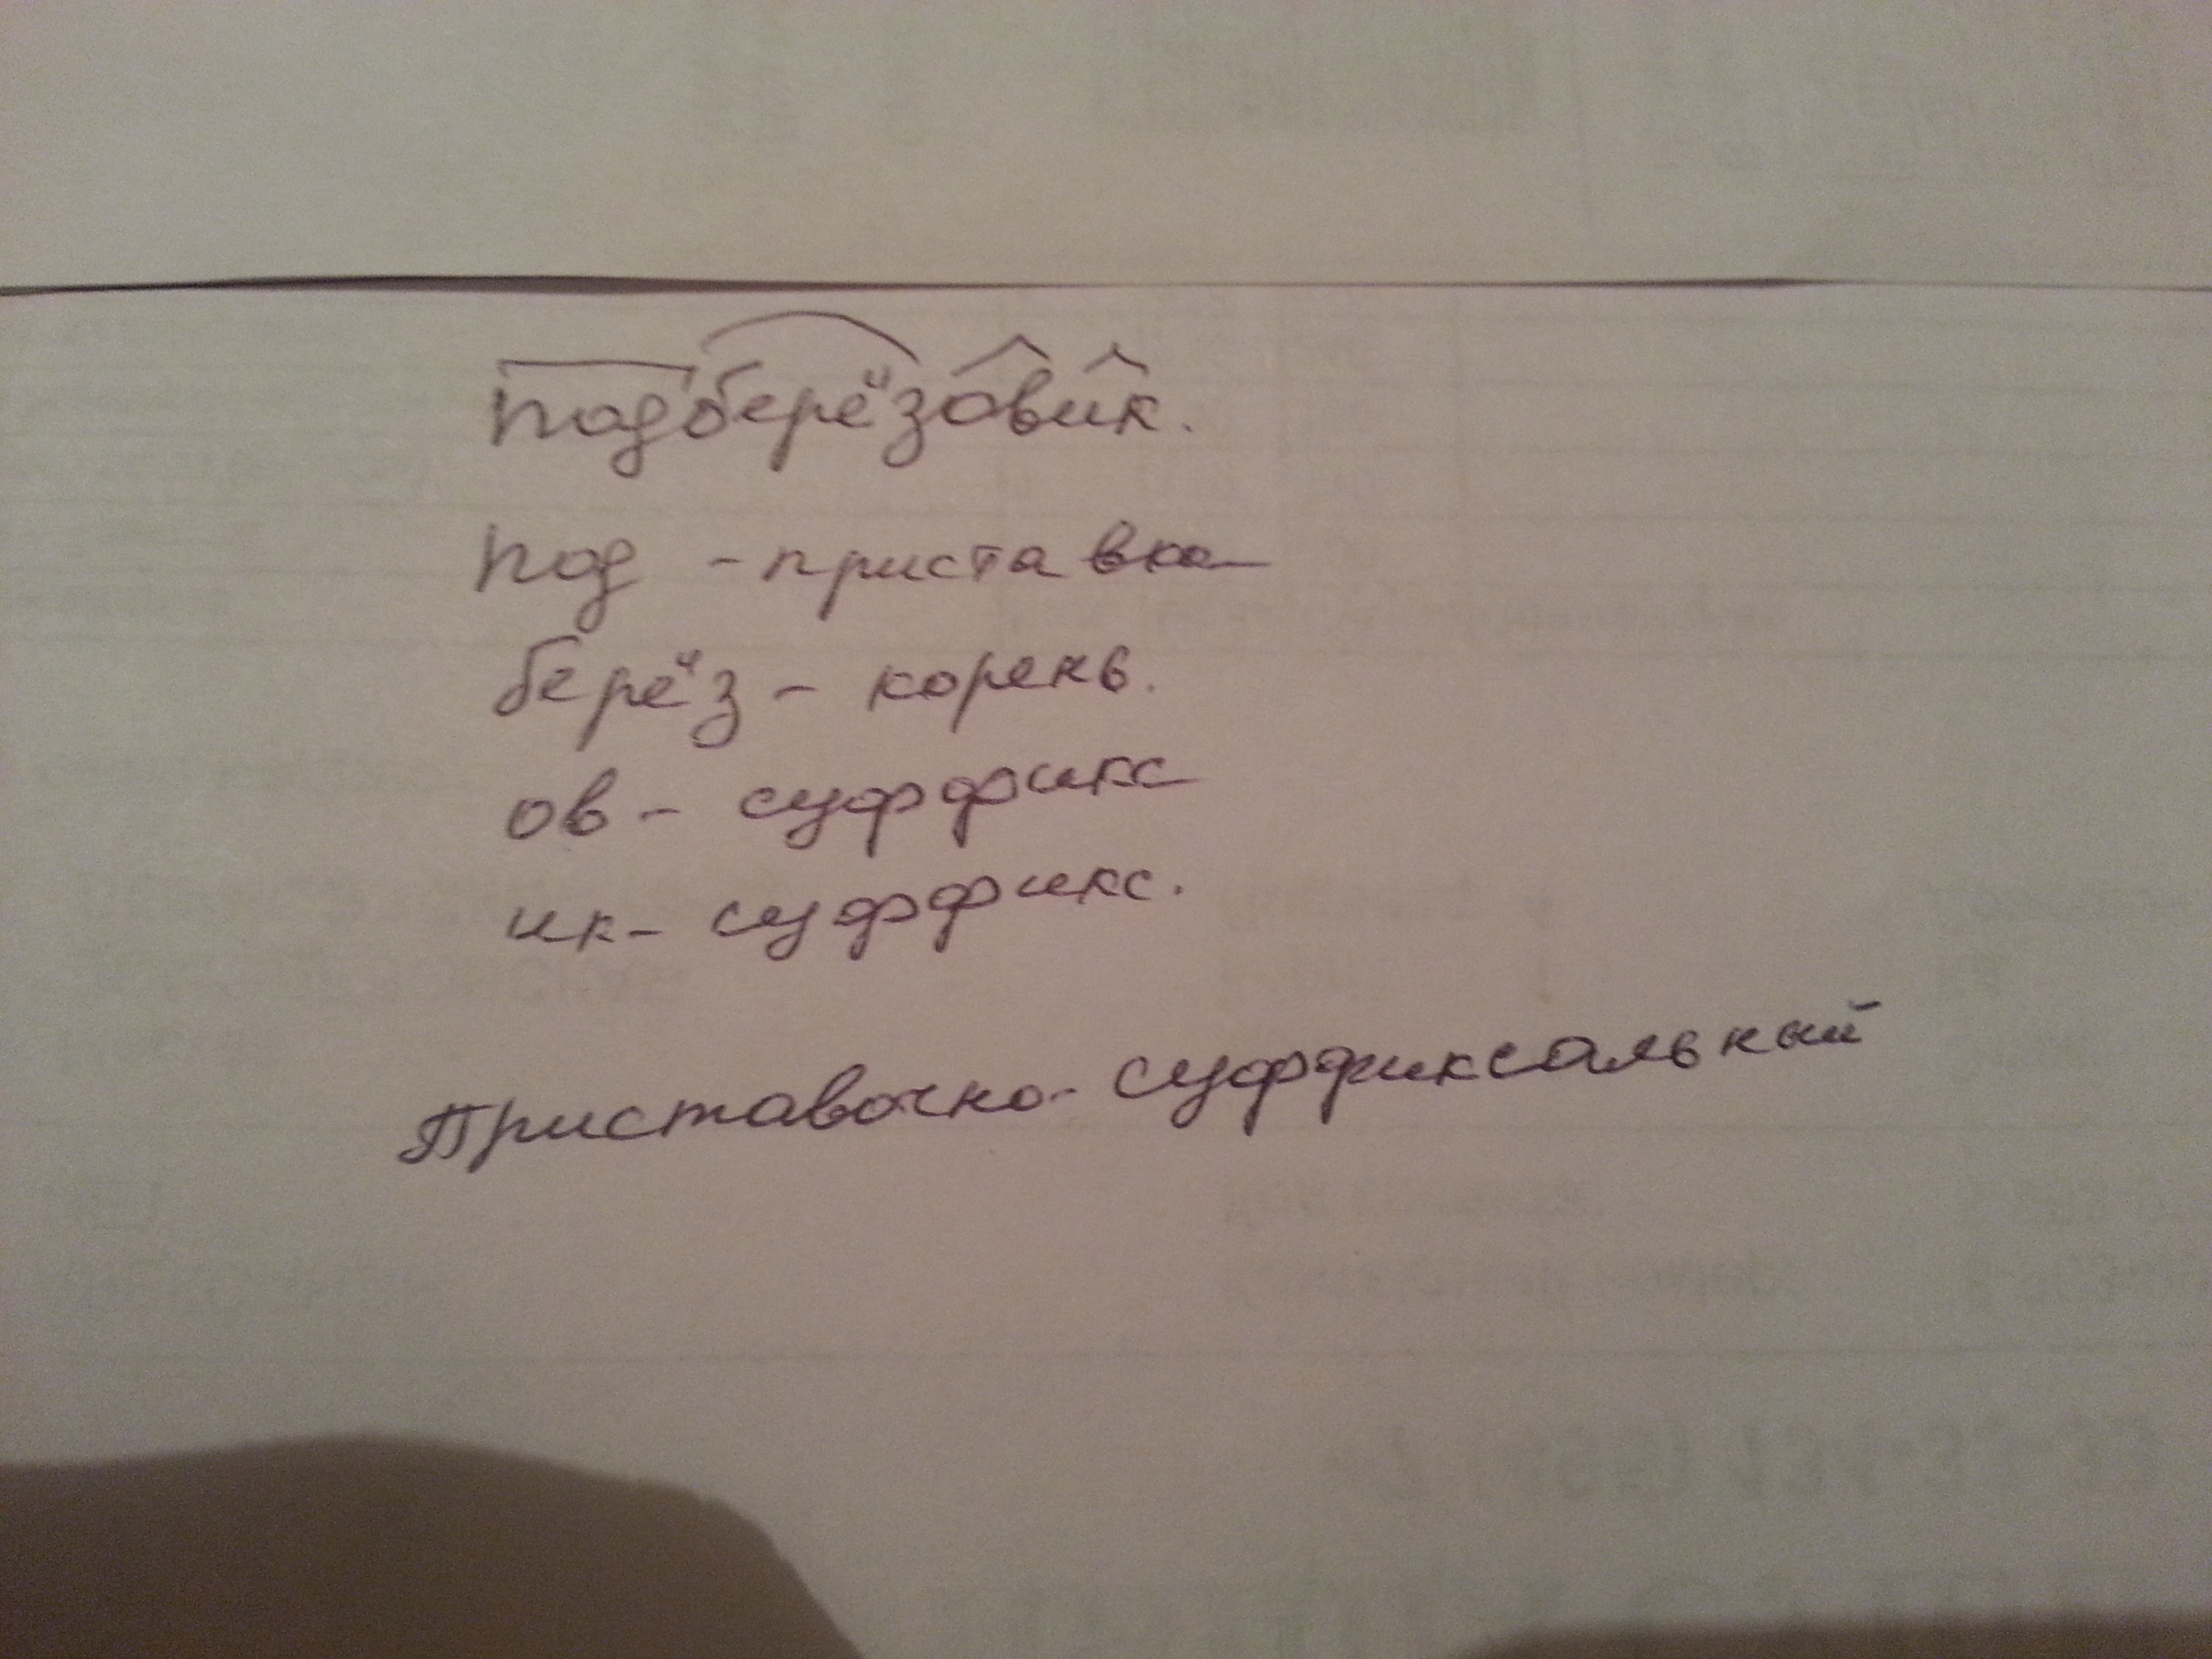 подберёзовик.
под - приставка
берёз - корень.
ов - суффикс
ик - суффикс.
Приставочно-суффиксальный